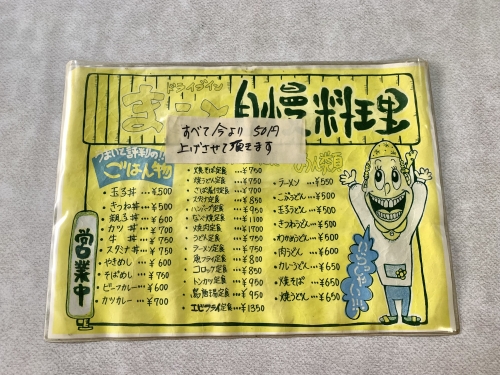 ドライブイン
自慢料理
すべて今より 50円
上げさせて頂きます
うまいと評判の!!
ごはん物
玉子丼…¥500
きつね丼…¥500
親子丼…¥600
カツ丼…¥700
牛丼…¥750
スタミナ丼…¥750
やきめし…¥600
そばめし…¥750
ビーフカレー…¥600
カツカレー…¥700
焼そば定食…¥750
焼うどん定食…¥750
スタミナ定食…¥850
ハンバーグ定食…¥950
なべ焼定食…¥1100
焼肉定食…¥1700
うどん定食…¥750
ラーメン定食…¥750
魚フライ定食…¥800
コロッケ定食…¥850
トンカツ定食…¥950
エビフライ定食…¥1350
ラーメン…¥550
玉子うどん…¥500
きつねうどん…¥500
わかめうどん…¥500
肉うどん…¥600
カレーうどん…¥650
焼そば…¥650
焼うどん…¥650
営業中
いらっしゃい!!